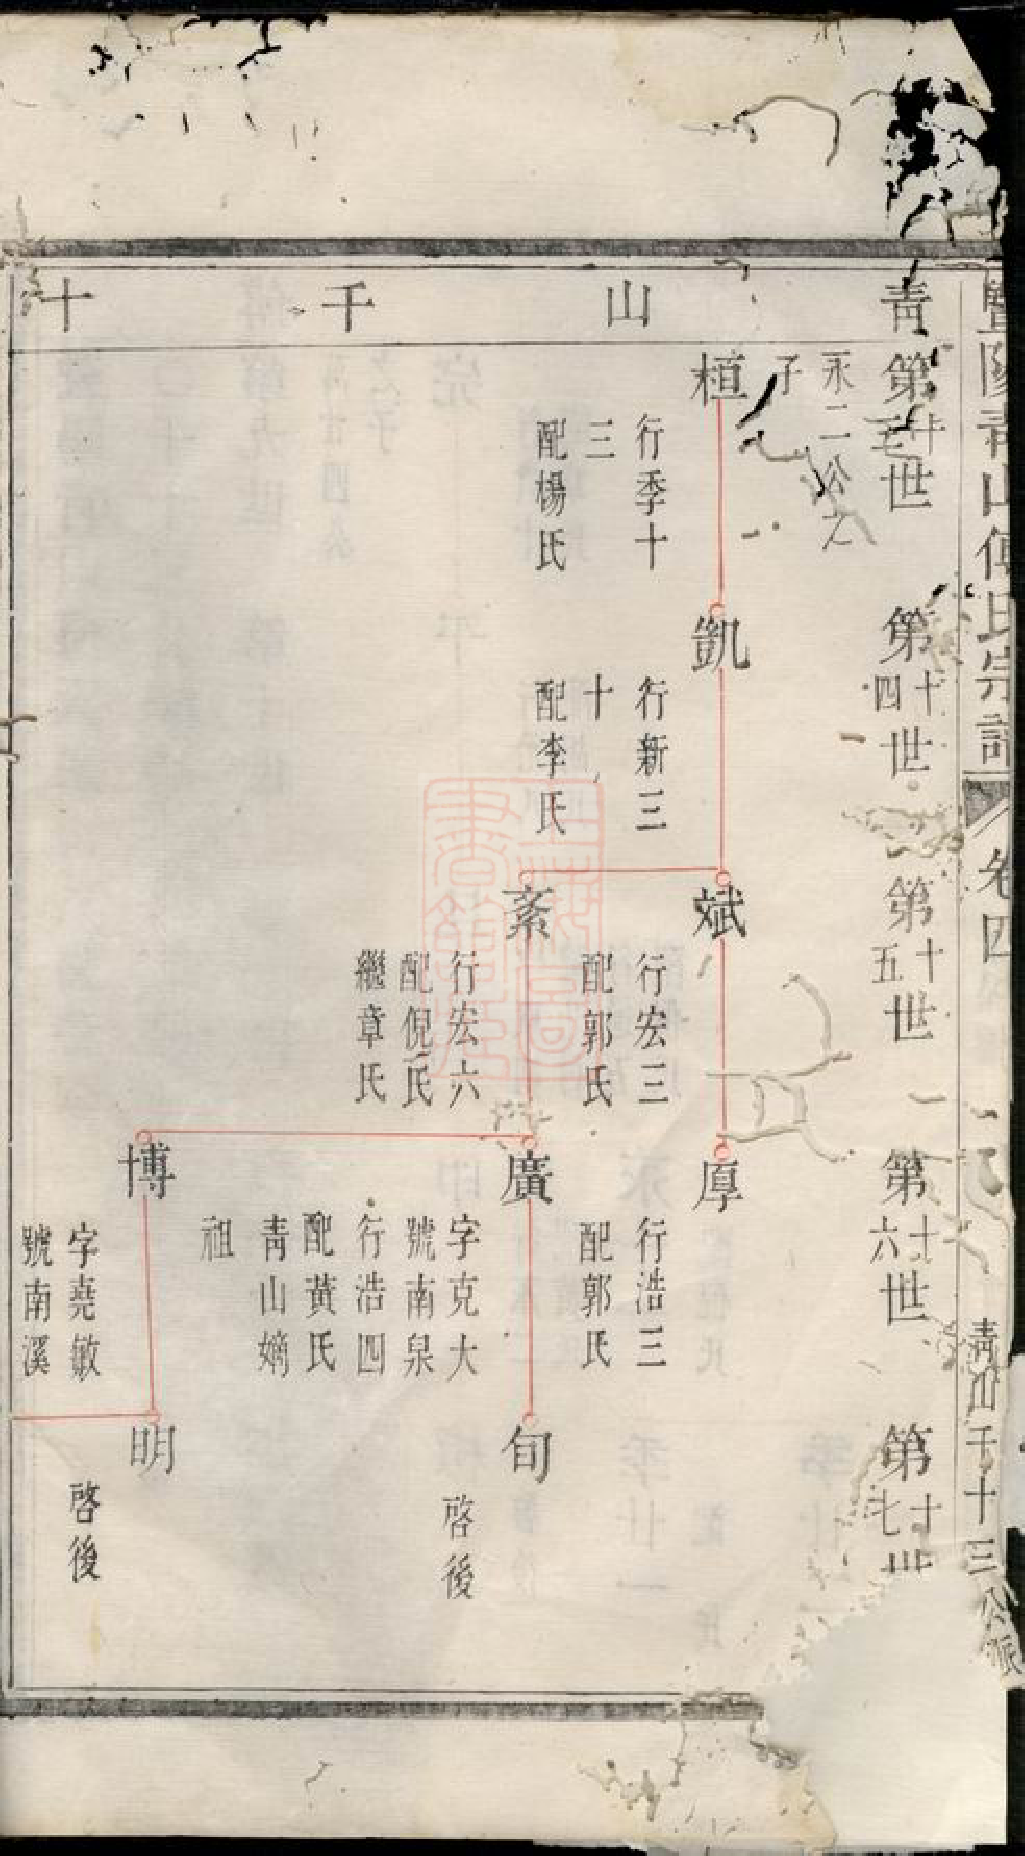 暨陽青山傅氏宗譜
卷四
青山千十三公派
青山千十
第十三世
第十四世
第十五世
第十六世
第十七世
永二公之
子
桓
行季十
三
配楊氏
凱
行新三
十
配李氏
斌
行宏三
配郭氏
厚
行浩三
配郭氏
紊
行宏六
配倪氏
繼章氏
廣
字克大
號南泉
行浩四
配黃氏
青山嫡
祖
旬
啓後
博
字堯敏
號南溪
明
啓後
上海圖書館藏